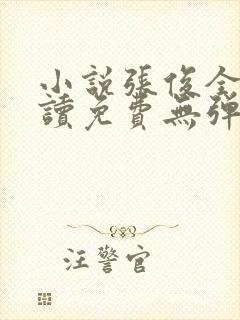 小說張俊全
讀免費無彈
汪警官